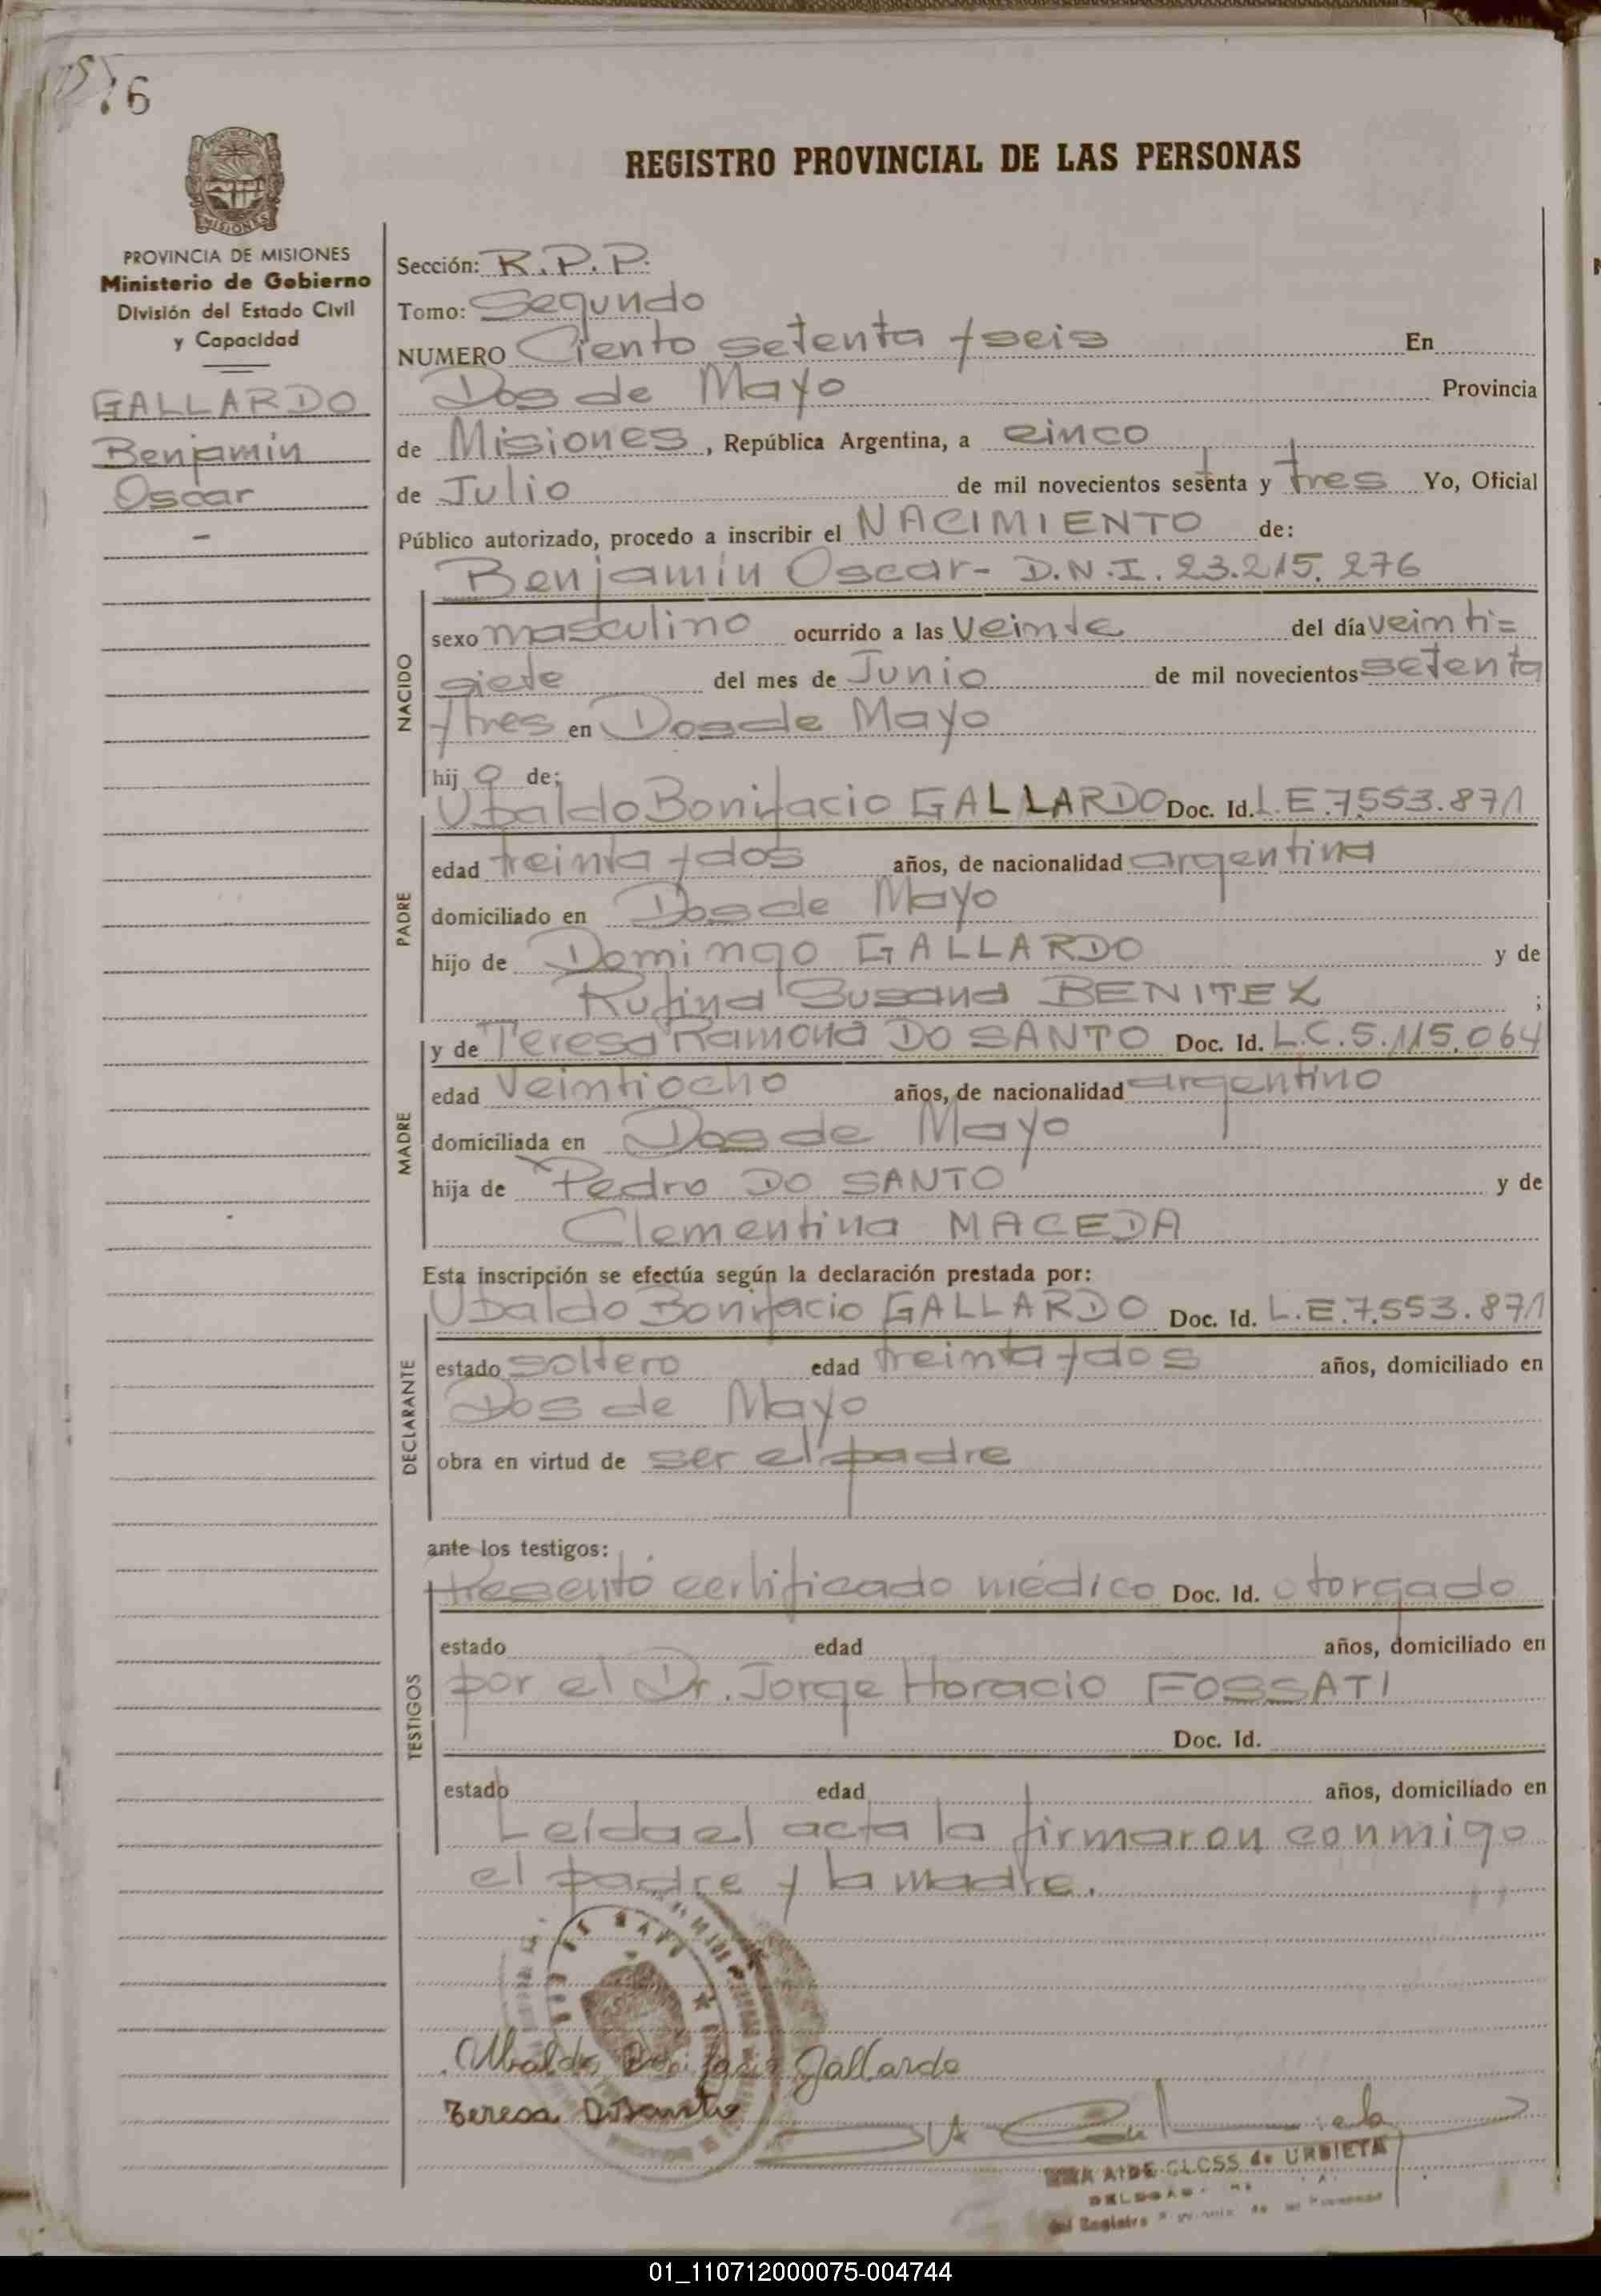 176
REGISTRO PROVINCIAL DE LAS PERSONAS
PROVINCIA DE MISIONES
Ministerio de Gobierno
División del Estado Civil
y Capacidad
GALLARDO
Benjamín
Oscar
-
Sección: R.P.P.
Tomo: Segundo
NUMERO Ciento setenta y seis En
Dos de Mayo Provincia
de Misiones, República Argentina, a cinco
de Julio de mil novecientos sesenta y tres Yo, Oficial
Público autorizado, procedo a inscribir el NACIMIENTO de:
Benjamín Oscar- D.N.I. 23.215.276
NACIDO
sexo masculino ocurrido a las Veinte del día veinti=
siete del mes de Junio de mil novecientos setenta
y tres en Dos de Mayo
hijo de:
PADRE
Ubaldo Bonifacio GALLARDO Doc. Id. L.E.7.553.871
edad treinta y dos años, de nacionalidad argentina
domiciliado en Dos de Mayo
hijo de Domingo GALLARDO y de
Rufina Susana BENITEZ ;
MADRE
y de Teresa Ramona DO SANTO Doc. Id. L.C.5.115.064
edad Veintiocho años, de nacionalidad argentino
domiciliada en Dos de Mayo
hija de Pedro DO SANTO y de
Clementina MACEDA
Esta inscripción se efectúa según la declaración prestada por:
DECLARANTE
Ubaldo Bonifacio GALLARDO Doc. Id. L.E.7.553.871
estado soltero edad treinta y dos años, domiciliado en
Dos de Mayo
obra en virtud de ser el padre
ante los testigos:
TESTIGOS
Presentó certificado médico Doc. Id. otorgado
estado edad años, domiciliado en
por el Dr. Jorge Horacio FOSSATI
Doc. Id.
estado edad años, domiciliado en
Leída el acta la firmaron conmigo
el padre y la madre.
Ubaldo Bonifacio Gallardo
Teresa DoSanto
AIDE CLOSS de URBIETA
del Registro
01_110712000075-004744